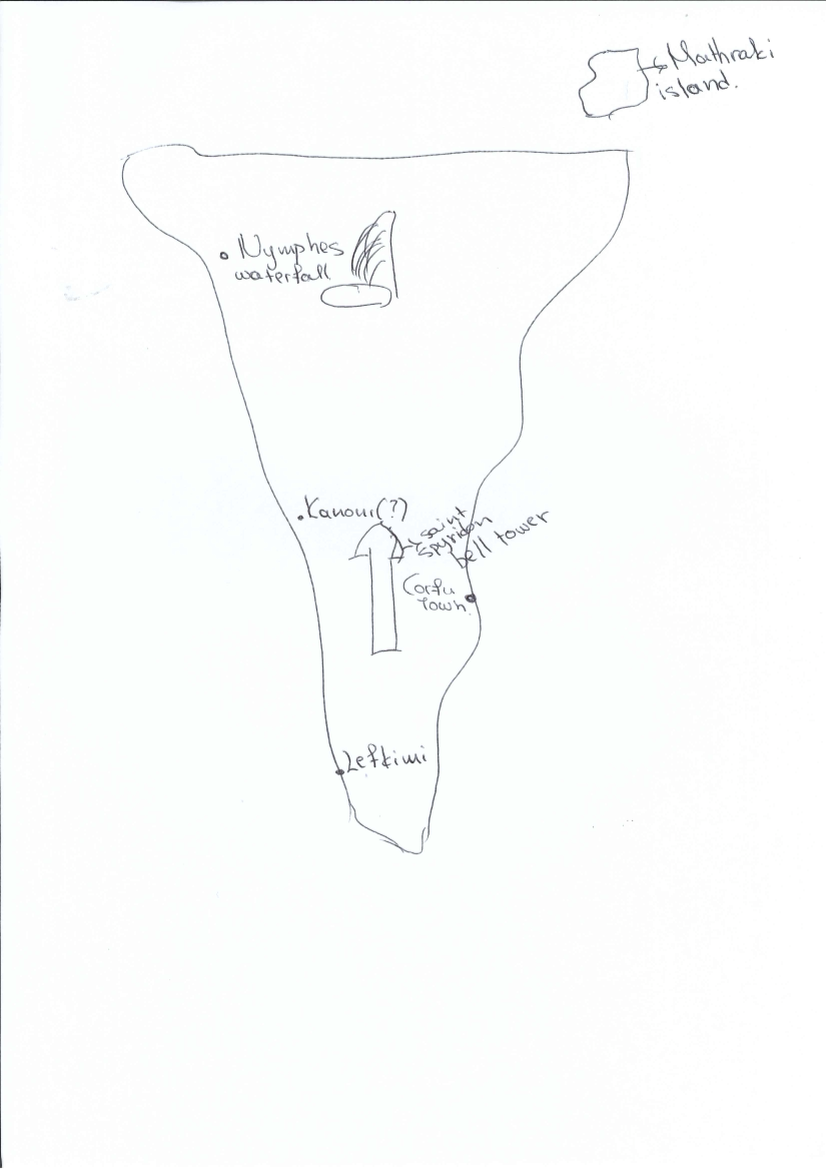 Mathraki
island.
Nymphes
waterfall
Kanoni(?)
saint
spyridon
bell tower
Corfu
Town.
Lefkimi